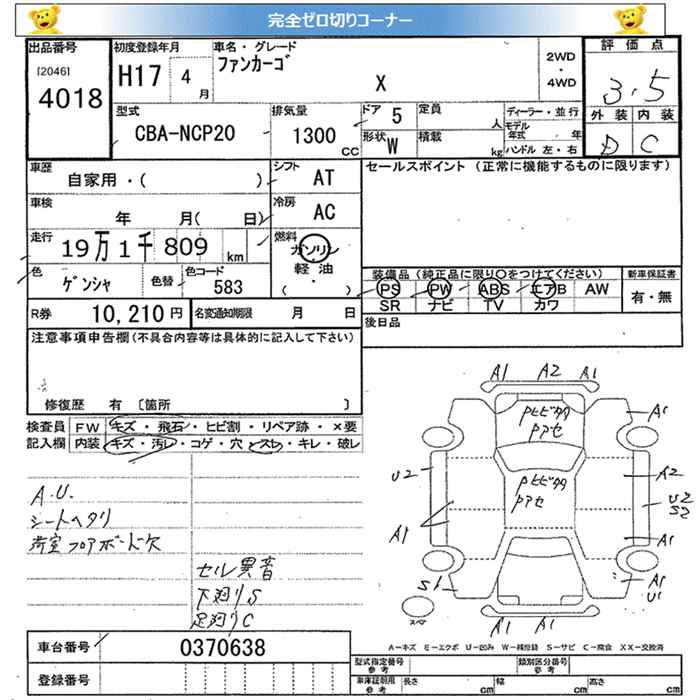 完全ゼロ切りコーナー
出品番号 初度登録年月 車名・グレード 2WD・4WD 評価点
[2046]
4018
H17 4 月
ファンカーゴ
X
3.5
外装 内装
D C
型式 CBA-NCP20
排気量 1300 CC
ドア 5 定員 人 ディーラー・並行
形状 W 積載 kg モデル年式 年
ハンドル 左・右
車歴 自家用・( )
シフト AT
セールスポイント (正常に機能するものに限ります)
車検 年 月( 日)
冷房 AC
走行 19万1千809 km
燃料 ガソリン・軽油・( )
色 ゲンシャ 色替 色コード 583
装備品(純正品に限り○をつけてください) 新車保証書
PS PW ABS エアB AW 有・無
SR ナビ TV カワ
R券 10,210 円 名変通知期限 月 日
後日品
注意事項申告欄(不具合内容等は具体的に記入して下さい)
修復歴 有 〔箇所 〕
検査員 FW キズ・飛石・ヒビ割・リペア跡・×要
記入欄 内装 キズ・汚レ・コゲ・穴・スレ・キレ・破レ
A.U.
シートヘタリ
荷室フロアボード欠
セル異音
下廻りS
足廻りC
A1 A2 A1
Pヒビタタ
Pアセ
A1
U2
Pヒビタタ
Pアセ
A2
U2
S2
A1
A1
S1
A1
U1
スペア
A1 A1
A-キズ E-エクボ U-凹み W-補修跡 S-サビ C-腐食 XX-交換済
車台番号 0370638
登録番号
型式指定番号 参考 類別区分番号 参考
車庫証明用 参考 長さ cm 幅 cm 高さ cm